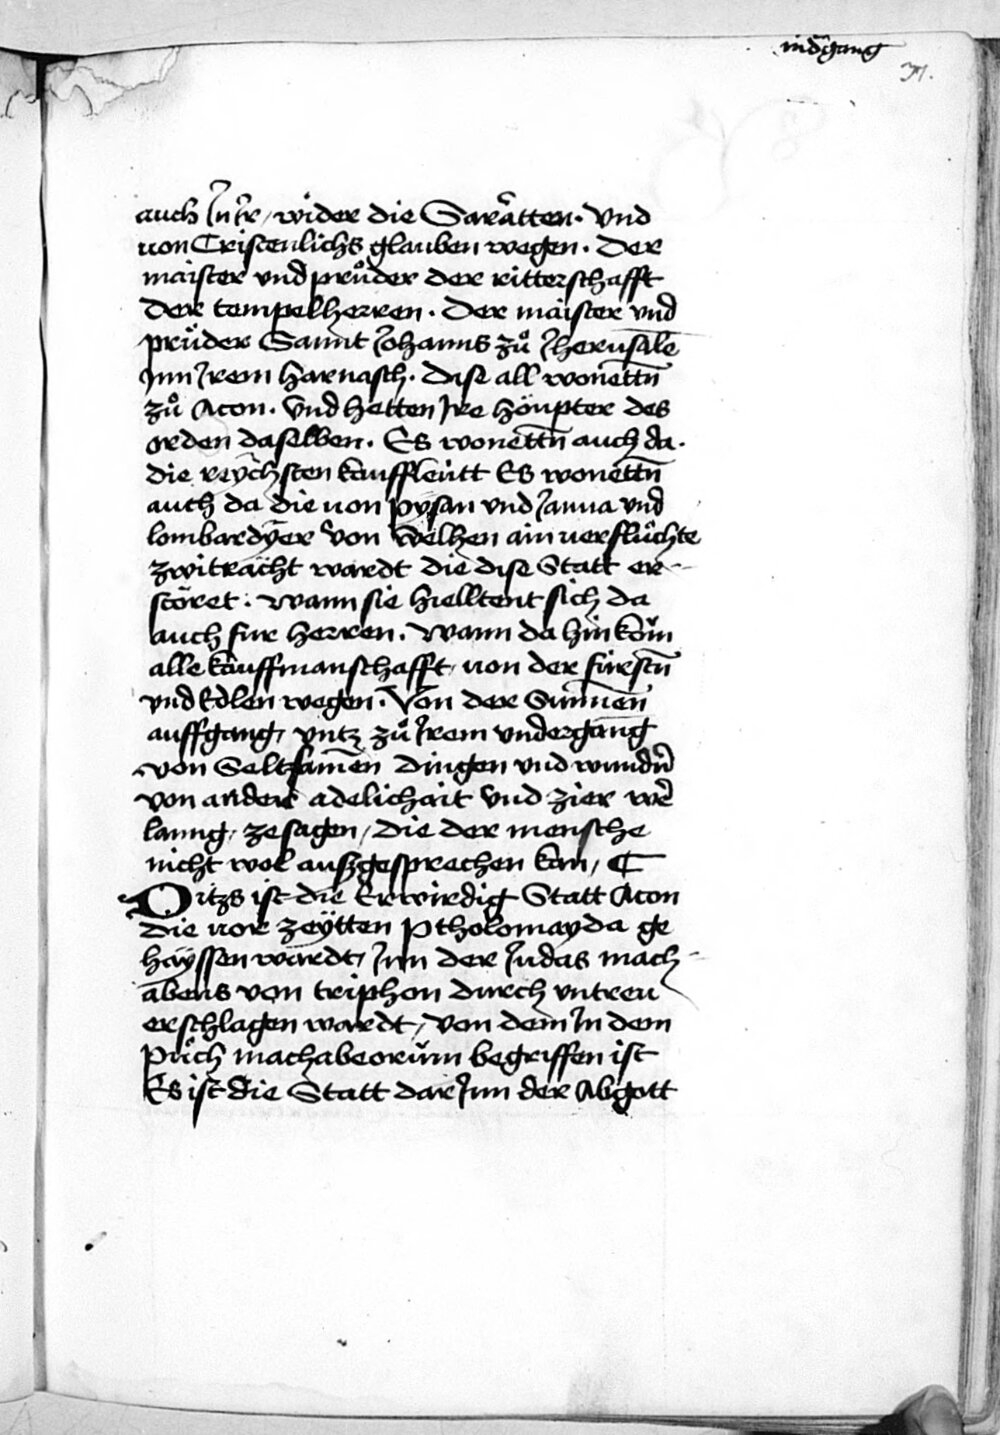 nidgang
31.
auch In Ir / wider die Saräcten. Vnd
von Cristenlichs glauben wegen. Der
maister vnd průder der ritterschafft
Der tempelherren. Der maister vnd
prüder Sannt Johanns zů Jherusalē
Inn Irem harnasch. Dise all wonettn̄
zů Acon. Vnd hetten Ire höupter des
orden daselben. Es wonettn̄ auch da.
die reychsten kauffleütt Es wonettn̄
auch da die von pysan vnd Janua vnd
lombardyer von welhen ain verflüchte
zwitracht wardt die dise Statt er-
störet. Wann sie hielltent sich da
auch für herren. Wann da hin kom̄
alle kauffmanschafft, von der fürstn̄
vnd Edlen wegen. Von der Sunnen
auffgang, vntz zů Irem vndergang
von Seltsamen dingen vnd wundn̄
von anders adelichait vnd zier wer̄
lanng, zesagen, die der mensche
nicht wol auszgesprechen kan, C
Ditzs ist die Erwirdig Statt Acon
die vor zeÿtten Ptholomayda ge
häyssen wardt, Inn der Judas mach-
abeus von triphon durch vntreu
erschlagen wardt, von dem In dem
půch machabeorum begriffen ist
Es ist die Statt dar Inn der Abgott